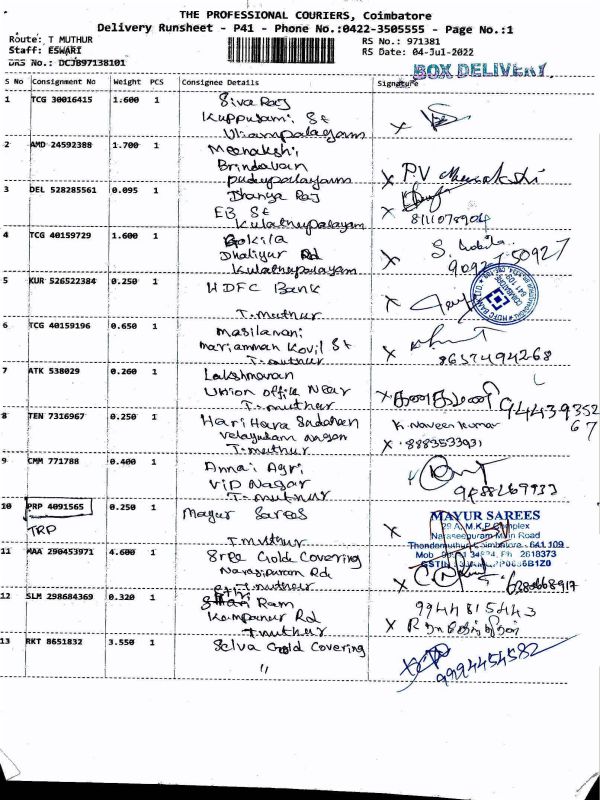 THE PROFESSIONAL COURIERS, Coimbatore
Delivery Runsheet - P41 - Phone No.:0422-3505555 - Page No.:1
Route: T MUTHUR
RS No.: 971381
Staff: ESWARI
RS Date: 04-Jul-2022
DRS No.: DCJB97138101
BOX DELIVERY
S No Consignment No Weight PCS Consignee Details Signature
1 TCG 30016415 1.600 1 Siva Raj
Kuppusami St
2 AMD 24592388 1.700 1 Meenakshi
Brindavan
pudupalayam
P.V Meenakshi
3 DEL 528285561 0.095 1 Dhanya Raj
EB St
Kulathupalayam
8111078904
4 TCG 40159729 1.600 1 Gokila
Dhaliyur Rd
Kulathupalayam
5 KUR 526522384 0.250 1 HDFC Bank
T.muthur
6 TCG 40159196 0.650 1 Masilamani
mariamman Kovil St
T.muthur
8637494268
7 ATK 538029 0.260 1 Lakshmanan
Union office Near
T.muthur
9443935267
8 TEN 7316967 0.250 1 Hari Hara Sudahan
T.muthur
K. Naveen Kumar
8883533931
9 CMM 771788 0.400 1 Annai Agri
VIP Nagar
T.muthur
10 PRP 4091565 0.250 1 Mayur Sarees
TRP
T.muthur
MAYUR SAREES
29 A, M.K.P Complex
Naraseepuram Main Road
Thondamuthur, Coimbatore - 641 109
Ph 2618373
11 MAA 290453971 4.600 1 Sree Gold Covering
Narasipuram Rd
T.muthur
12 SLM 298684369 0.320 1 Ram
Kempanur Rd
T.muthur
9944815443
13 RKT 8651832 3.550 1 Selva Gold Covering
"
9994454582